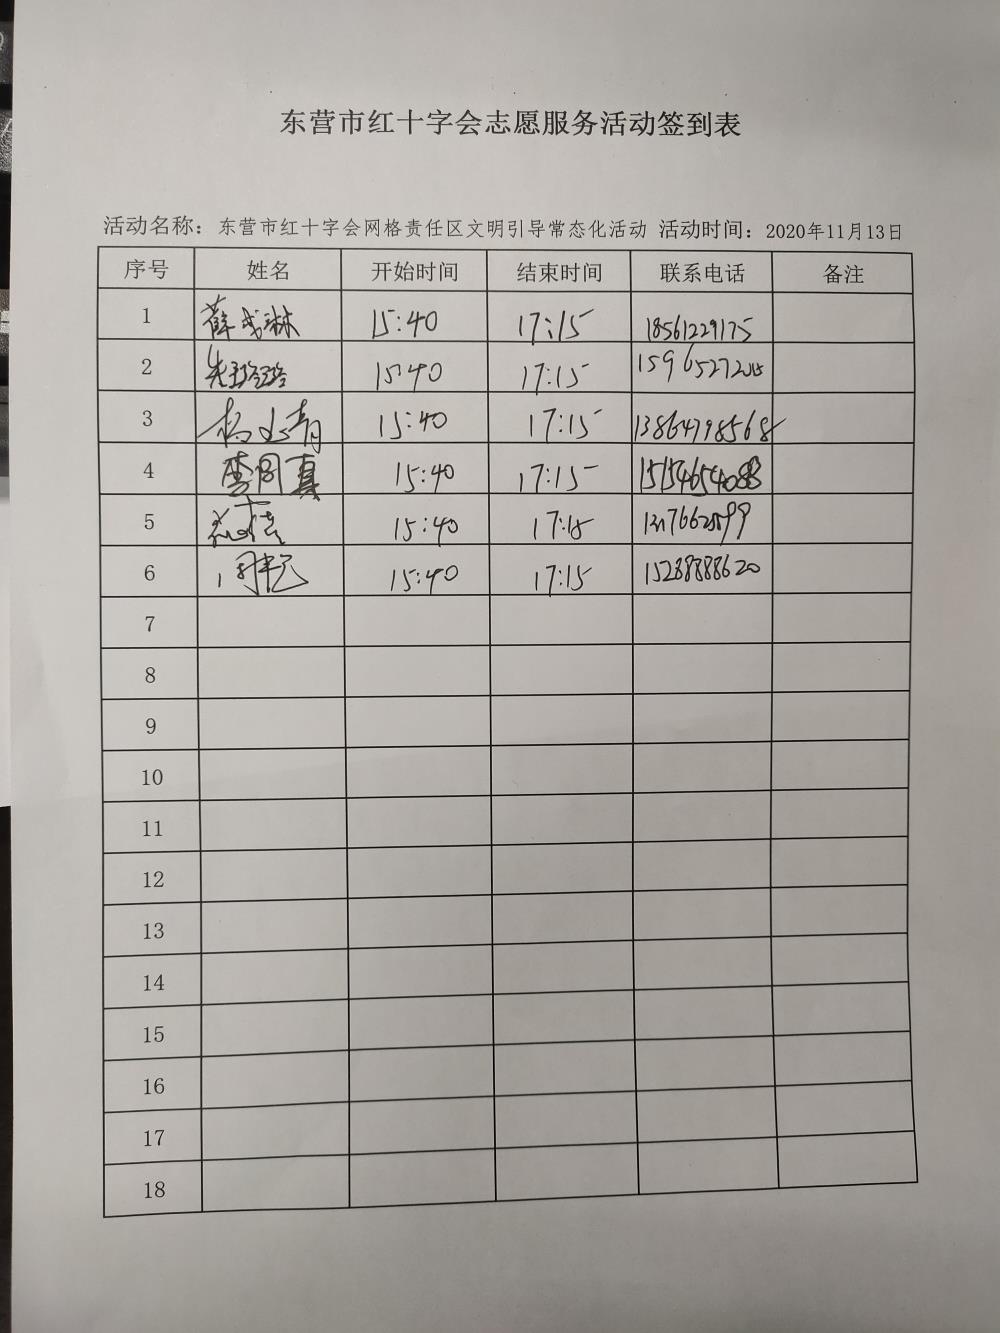 东营市红十字会志愿服务活动签到表
活动名称：东营市红十字会网格责任区文明引导常态化活动 活动时间：2020年11月13日
序号 姓名 开始时间 结束时间 联系电话 备注
1 15:40 17:15 18561229175
2 15:40 17:15
3 15:40 17:15 13864798568
4 15:40 17:15
5 15:40 17:15
6 15:40 17:15 15288888620
7
8
9
10
11
12
13
14
15
16
17
18